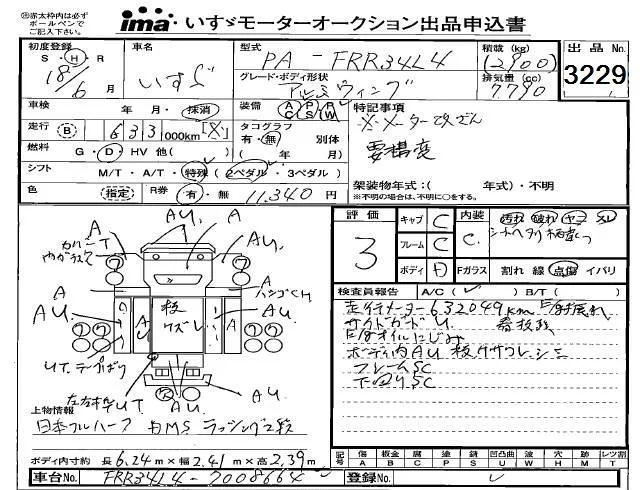 ㊟赤太枠内は必ず
ボールペンで
ご記入下さい。
ima いすゞモーターオークション出品申込書
初度登録 S・H・R 18年 6月
車名 いすゞ
型式 PA-FRR34L4
積載(kg) (2900)
出品No. 3229
グレード・ボディ形状 アルミウィング
排気量(cc) 7.790
車検 年・月・抹消
装備 AC PS PW
特記事項
※メーター改ざん
要構変
走行 (B) 633,000km [※]
タコグラフ 有・無 別体 ( 年 月)
燃料 G・D・HV 他( )
シフト M/T・A/T・特殊 (2ペダル・3ペダル)
架装物年式:( 年式)・不明
※不明の場合は、不明に○をする。
色 (指定) R券 有・無 11,340円
評価 3
キャブ C
フレーム C
ボディ D
内装 C
汚れ 破れ ヤニ スレ
シートヘタリ 柄違い
Fガラス 割れ 線 点傷 イバリ
検査員報告 A/C( ✓ ) B/T( )
走行メーター632049km
サイドガード U
E/gオイルにじみ
ボディ内AU
フレームSC
下回りSC
AU. A AU.
カバーT
A
A
AU
AU
AU
板
ワズレ
A
ハンプCH
A
AU.
UT.テープばり
UT
AU.
AU
上物情報
日本フルハーフ 内MS ラッシング2段
ボディ内寸約 長6.24m×幅2.41m×高2.39m
記号 傷 A 板金 B 腐 C 塗 P 錆 S 凹凸曲 U 凹 W 穴 H 跡 M レンズ割 T
車台No. FRR34L4-7008664
登録No. ✓